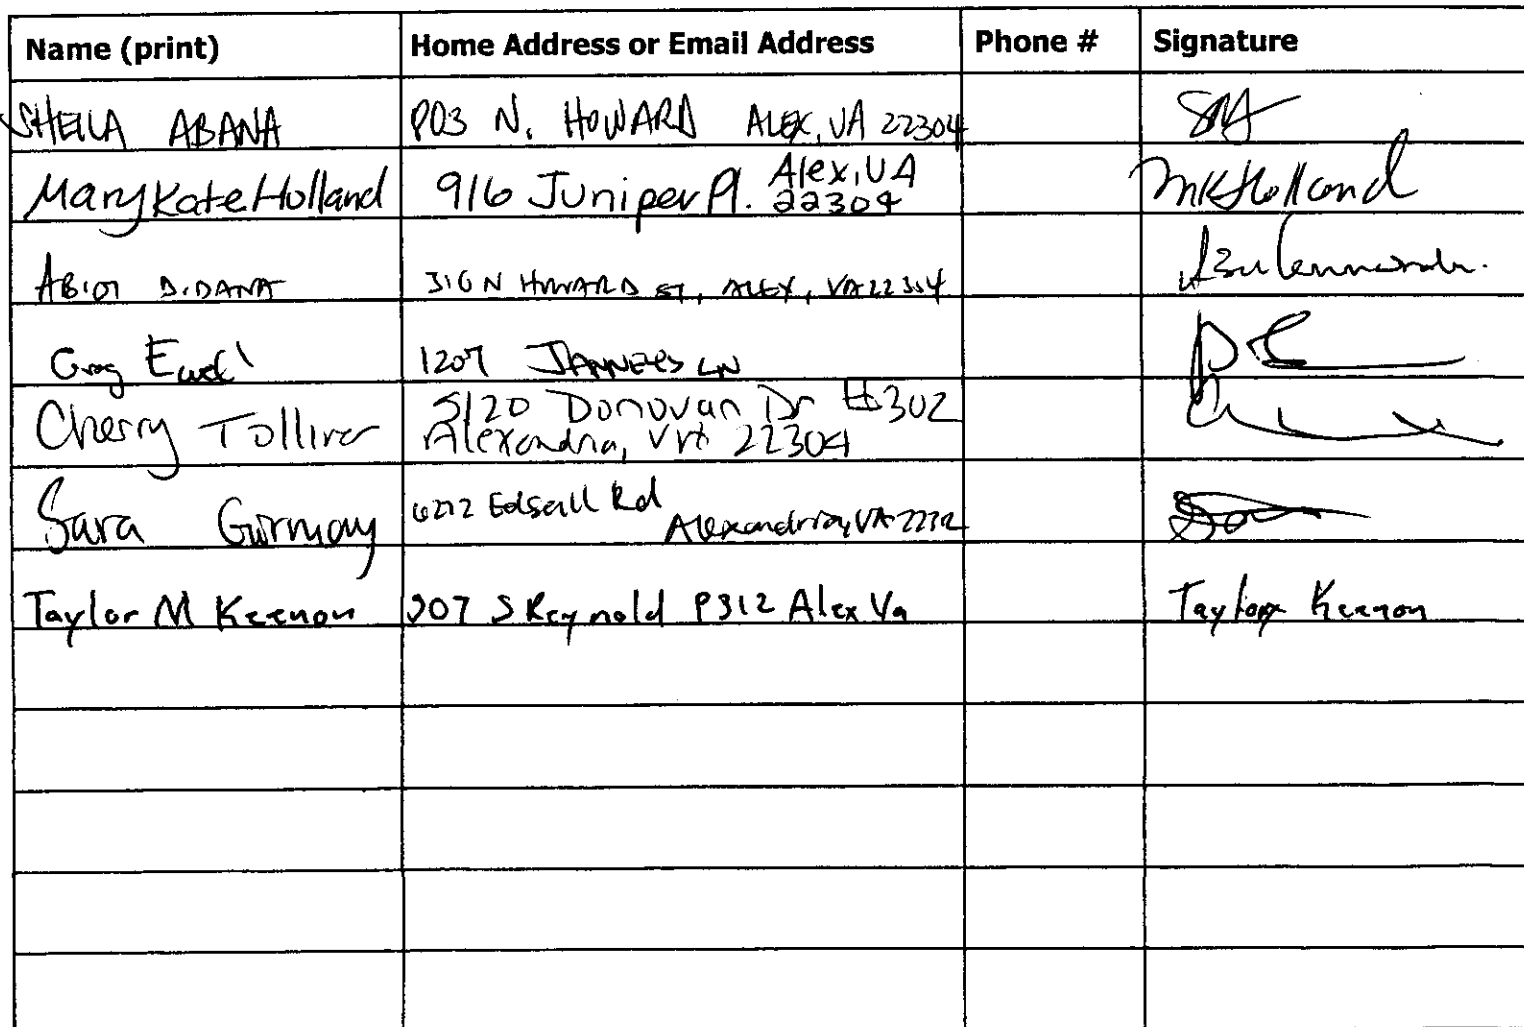 Name (print) Home Address or Email Address Phone # Signature
SHEILA ABANA 803 N. HOWARD ALEX, VA 22304
Mary Kate Holland 916 Juniper Pl. Alex, VA
22304 MKHolland
ABIOT D. DANA N HOWARD ST, ALEX, VA 22304
Greg 1207 LN
Cherry Tolliver 5120 Donovan Dr #302
Alexandria, VA 22304
Sara Girmay 6272 Edsall Rd
Alexandria, VA 22312
Taylor M Keenon 307 S Reynold P312 Alex Va Taylor Keenon